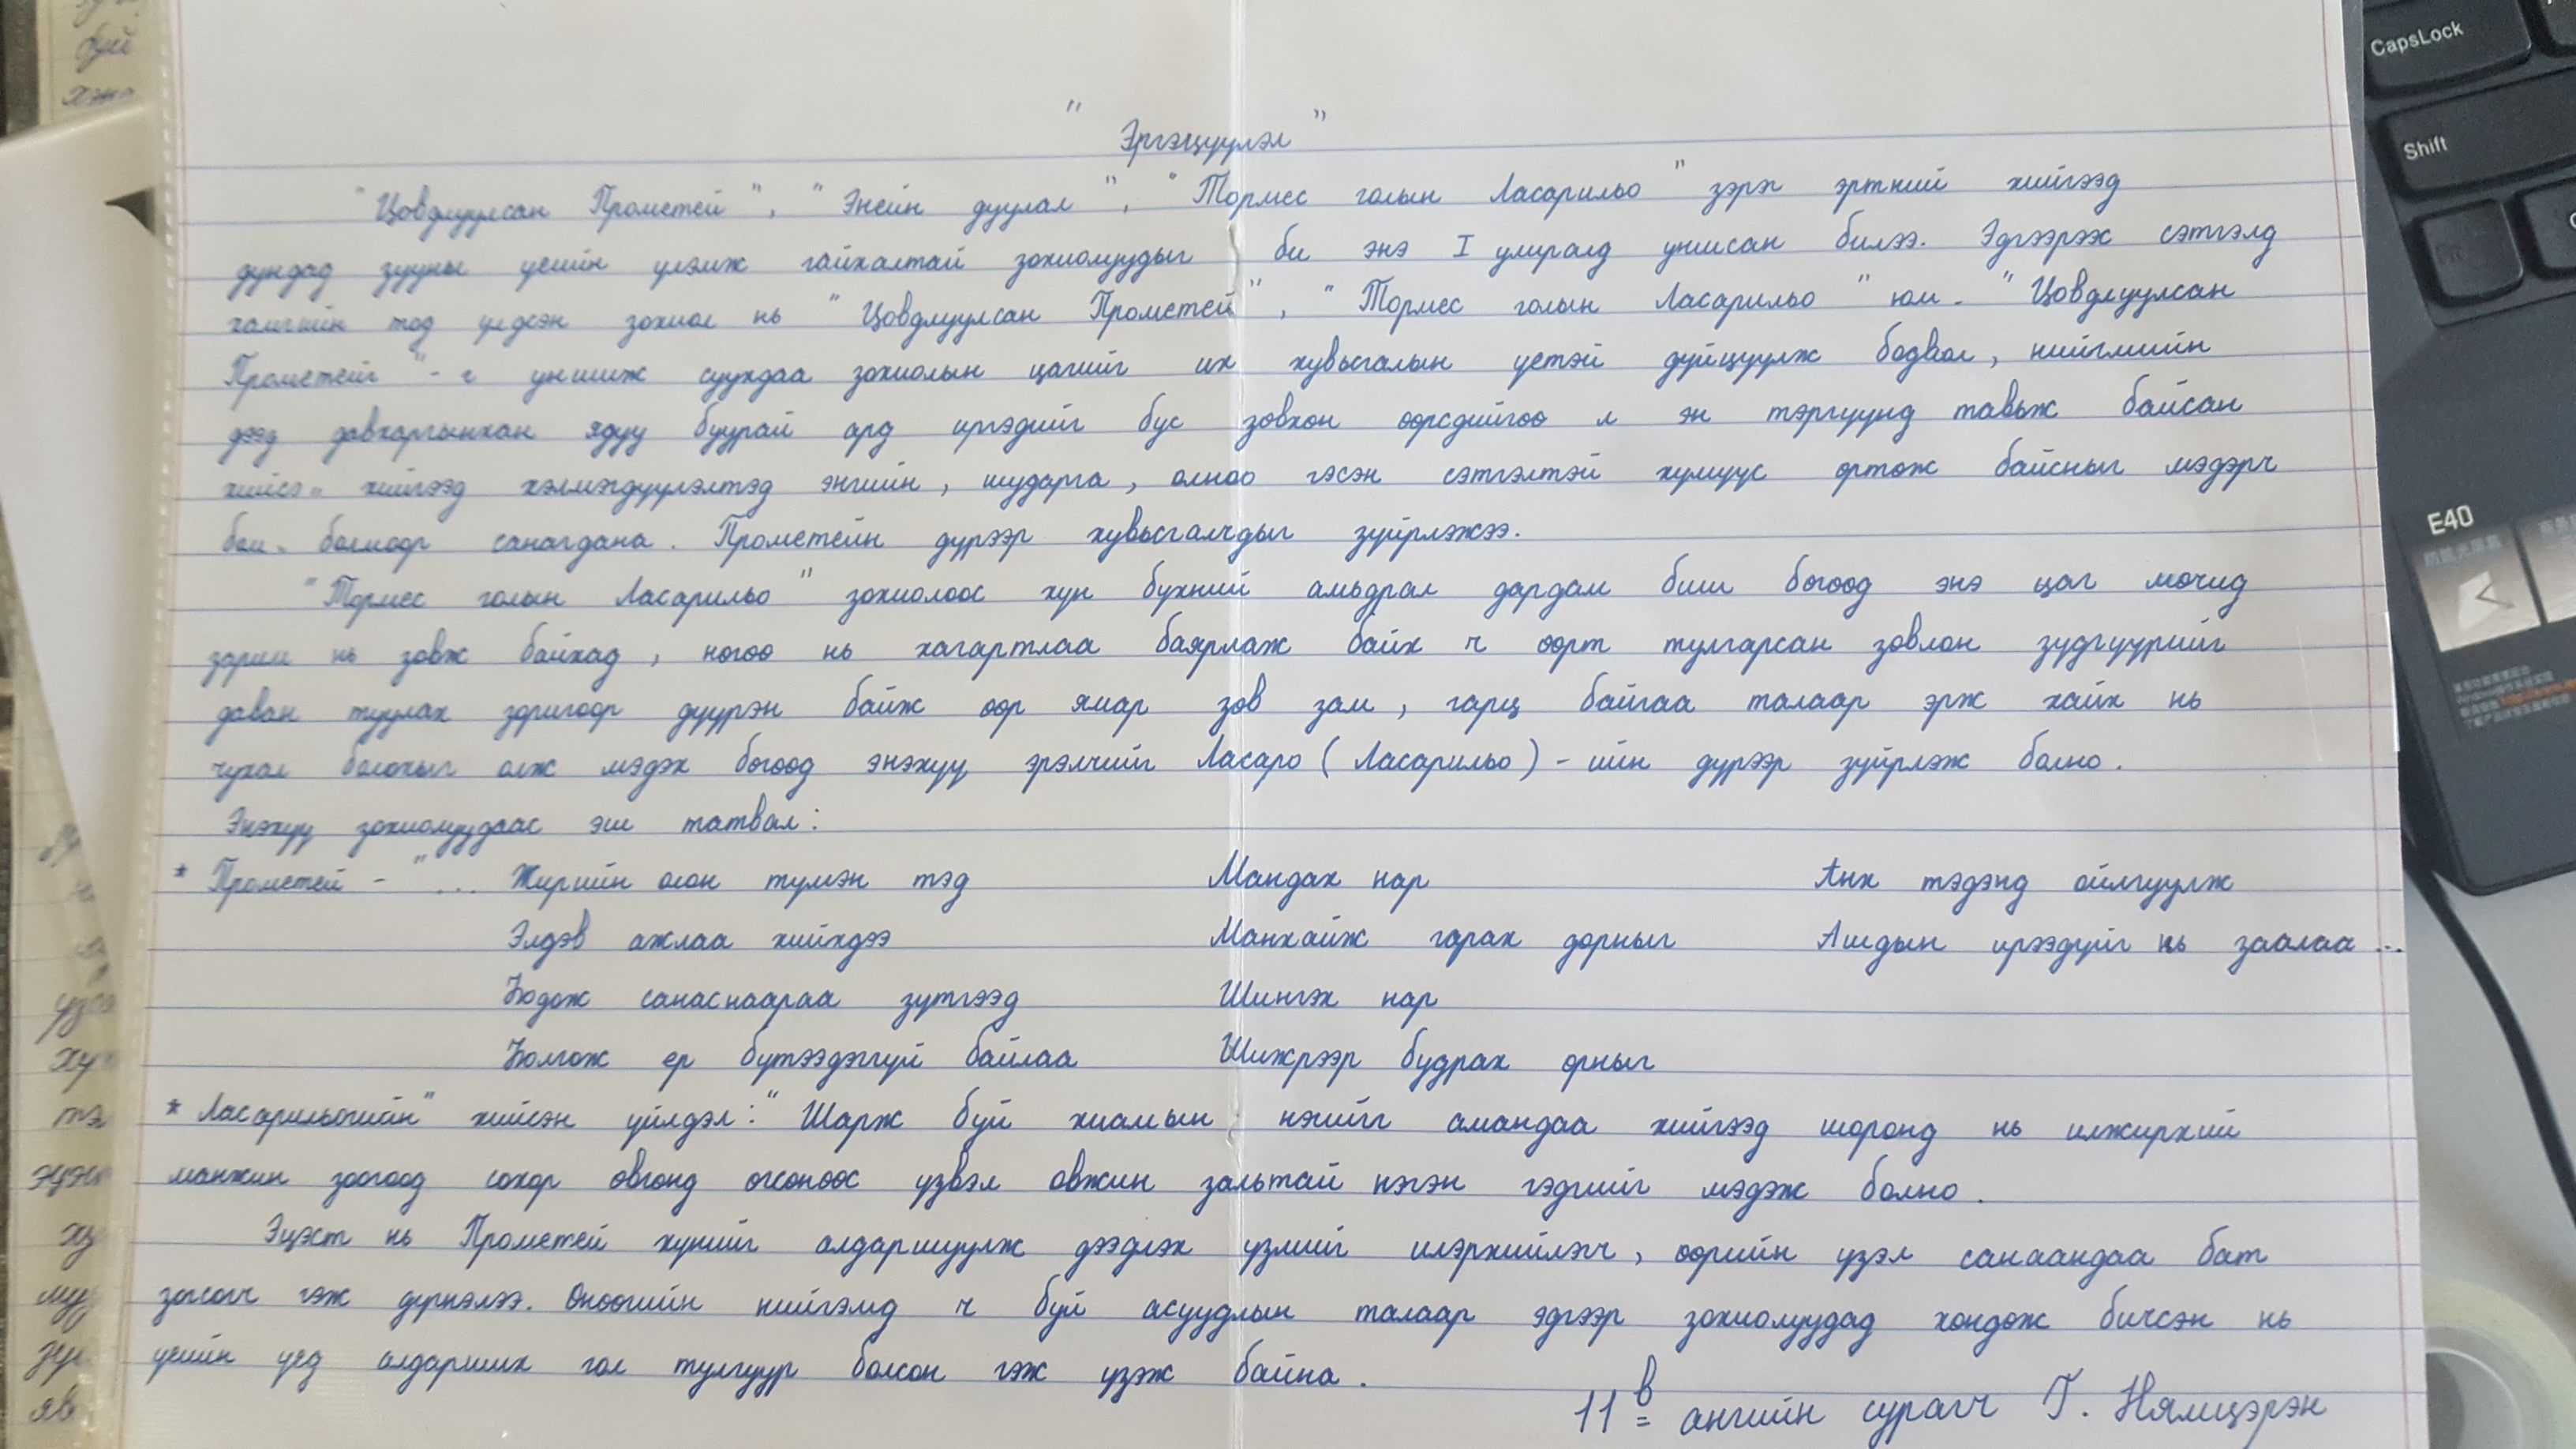 " Эргэцүүлэл "
"Цовдлуулсан Прометей", "Энейн дуулал", "Тормес голын Ласарильо" зэрэг эртний хийгээд
дундад зууны үеийн үлэмж гайхалтай зохиолуудыг би энэ I улиралд уншсан билээ. Эдгээрээс сэтгэлд
хамгийн тод үлдсэн зохиол нь "Цовдлуулсан Прометей", "Тормес голын Ласарильо" юм. "Цовдлуулсан
Прометей"-г уншиж суухдаа зохиолын цагийг их хувьсгалын үетэй дүйцүүлж бодвол, нийгмийн
дээд давхаргынхан ядуу буурай ард иргэдийг бус зөвхөн өөрсдийгөө л эн тэргүүнд тавьж байсан
хийгээд хэлмэгдүүлэлтэд энгийн, шударга, олноо гэсэн сэтгэлтэй хүмүүс өртөж байсныг мэдэрч
болмоор санагдана. Прометейн дүрээр хувьсгалчдыг зүйрлэжээ.
"Тормес голын Ласарильо" зохиолоос хүн бүхний амьдрал дардам биш бөгөөд энэ цаг мөчид
зарим нь зовж байхад, нөгөө нь хагартлаа баярлаж байх ч өөрт тулгарсан зовлон зүдгүүрийг
даван туулах зоригоор дүүрэн байж өөр ямар зөв зам, гарц байгаа талаар эрж хайх нь
чухал болохыг олж мэдэх бөгөөд энэхүү эрэлчийг Ласаро (Ласарильо)-ийн дүрээр зүйрлэж болно.
Энэхүү зохиолуудаас эш татвал:
* Прометей - "... Жирийн олон түмэн тэд Мандах нар Анх тэдэнд ойлгуулж
Элдэв ажлаа хийхдээ Манхайж гарах дорныг Ашдын ирээдүйг нь заалаа...
Бодож санаснаараа зүтгээд Шингэх нар
Болгож ер бүтээдэггүй байлаа Шижрээр будрах өрныг
* Ласарильогийн" хийсэн үйлдэл: "Шарж буй хиамын нэгийг амандаа хийгээд шоронд нь илжирхий
манжин зоогоод сохор өвгөнд өгсөнөөс үзвэл овжин зальтай нэгэн гэдгийг мэдэж болно.
Эцэст нь Прометей хүнийг алдаршуулж дээдлэх үзлийг илэрхийлэгч, өөрийн үзэл санаандаа бат
зогсогч гэж дүгнэлээ. Өнөөгийн нийгэмд ч буй асуудлын талаар эдгээр зохиолуудад хөндөж бичсэн нь
үеийн үед алдарших гол тулгуур болсон гэж үзэж байна.
11в ангийн сурагч Г. Нямцэрэн
CapsLock
Shift
E40